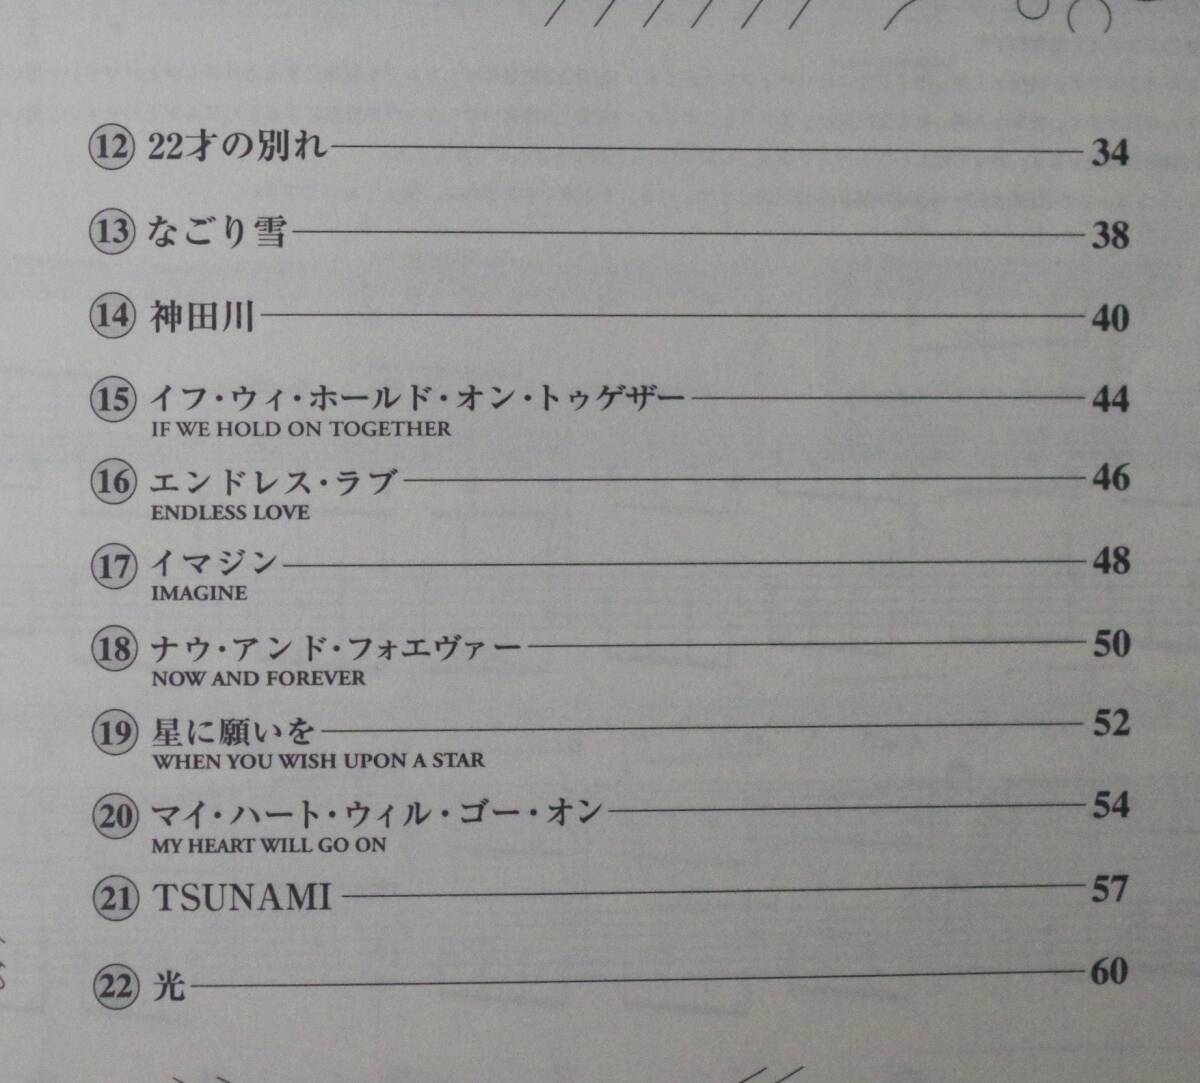 ⑫ 22才の別れ 34
⑬ なごり雪 38
⑭ 神田川 40
⑮ イフ・ウィ・ホールド・オン・トゥゲザー 44
IF WE HOLD ON TOGETHER
⑯ エンドレス・ラブ 46
ENDLESS LOVE
⑰ イマジン 48
IMAGINE
⑱ ナウ・アンド・フォエヴァー 50
NOW AND FOREVER
⑲ 星に願いを 52
WHEN YOU WISH UPON A STAR
⑳ マイ・ハート・ウィル・ゴー・オン 54
MY HEART WILL GO ON
㉑ TSUNAMI 57
㉒ 光 60